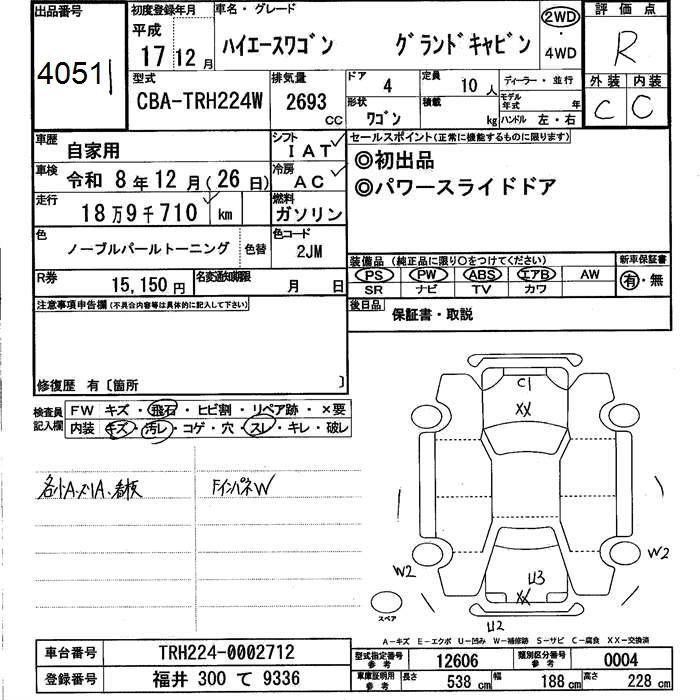 出品番号
4051
初度登録年月
平成
17 12月
車名・グレード
ハイエースワゴン グランドキャビン
2WD
・
4WD
評価点
R
型式
CBA-TRH224W
排気量
2693
CC
ドア
4
定員
10人
ディーラー・並行
形状
ワゴン
積載
kg
モデル
年式
年
ハンドル 左・右
外装 内装
C C
車歴
自家用
シフト
IAT
車検
令和 8年12月(26日)
冷房
AC
走行
18万9千710 km
燃料
ガソリン
色
ノーブルパールトーニング
色替
色コード
2JM
R券
15,150円
名変通知期限
月 日
セールスポイント(正常に機能するものに限ります)
◎初出品
◎パワースライドドア
装備品(純正品に限り○をつけてください)
新車保証書
PS PW ABS エアB AW
SR ナビ TV カワ
有・無
後日品
保証書・取説
注意事項申告欄(不具合内容等は具体的に記入して下さい)
修復歴 有〔箇所 〕
検査員
記入欄
FW キズ・飛石・ヒビ割・リペア跡・×要
内装 キズ・汚レ・コゲ・穴・スレ・キレ・破レ
各小A・メリA、看板
FインパネW
C1
XX
W2
W2
U3
XX
U2
スペア
A-キズ E-エクボ U-凹み W-補修跡 S-サビ C-腐食 XX-交換済
車台番号
TRH224-0002712
登録番号
福井 300 て 9336
型式指定番号
参考
12606
類別区分番号
参考
0004
車庫証明用
参考
長さ
538 cm
幅
188 cm
高さ
228 cm